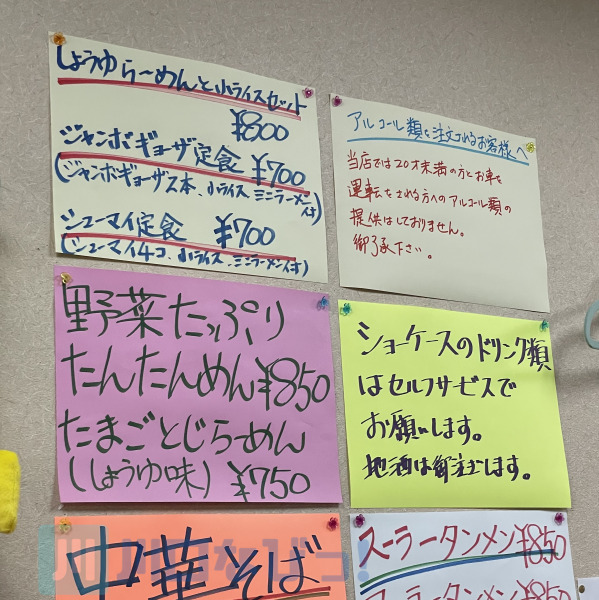 しょうゆらーめんと小ライスセット
¥800
ジャンボギョーザ定食 ¥700
(ジャンボギョーザ5本、小ライス ミニラーメン付)
シューマイ定食 ¥700
(シューマイ4コ、小ライス ミニラーメン付)
アルコール類を注文されるお客様へ
当店では20才未満の方とお車を
運転をされる方へのアルコール類の
提供はしておりません。
御了承下さい。
野菜たっぷり
たんたんめん¥850
たまごとじらーめん
(しょうゆ味) ¥750
ショーケースのドリンク類
はセルフサービスで
お願いします。
地酒は御注ぎします。
中華そば
スーラータンメン¥850